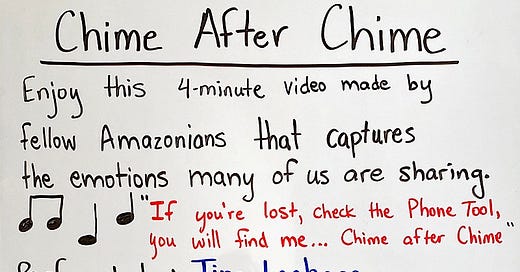 Chime After Chime
Enjoy this 4-minute video made by
fellow Amazonians that captures
the emotions many of us are sharing.
"If you're lost, check the Phone Tool,
you will find me... Chime after Chime"